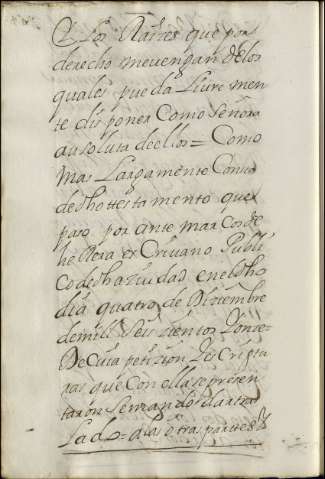 Y los Raíses que por
derecho mevengan delos
quales pueda Livre men
te dis poner Como señora
absoluta deellos = Como
mas Largamente Consta
dedho testamento que
paso por ante marcos de
herrera escrivano Publi
co desta ziudad eneldho
dia quatro de Diziembre
demill seis zientos y onse
De Cuia petizion y escriptu
ras que Con ella se presen
taron se mando dar tras
lado = a las otras partes